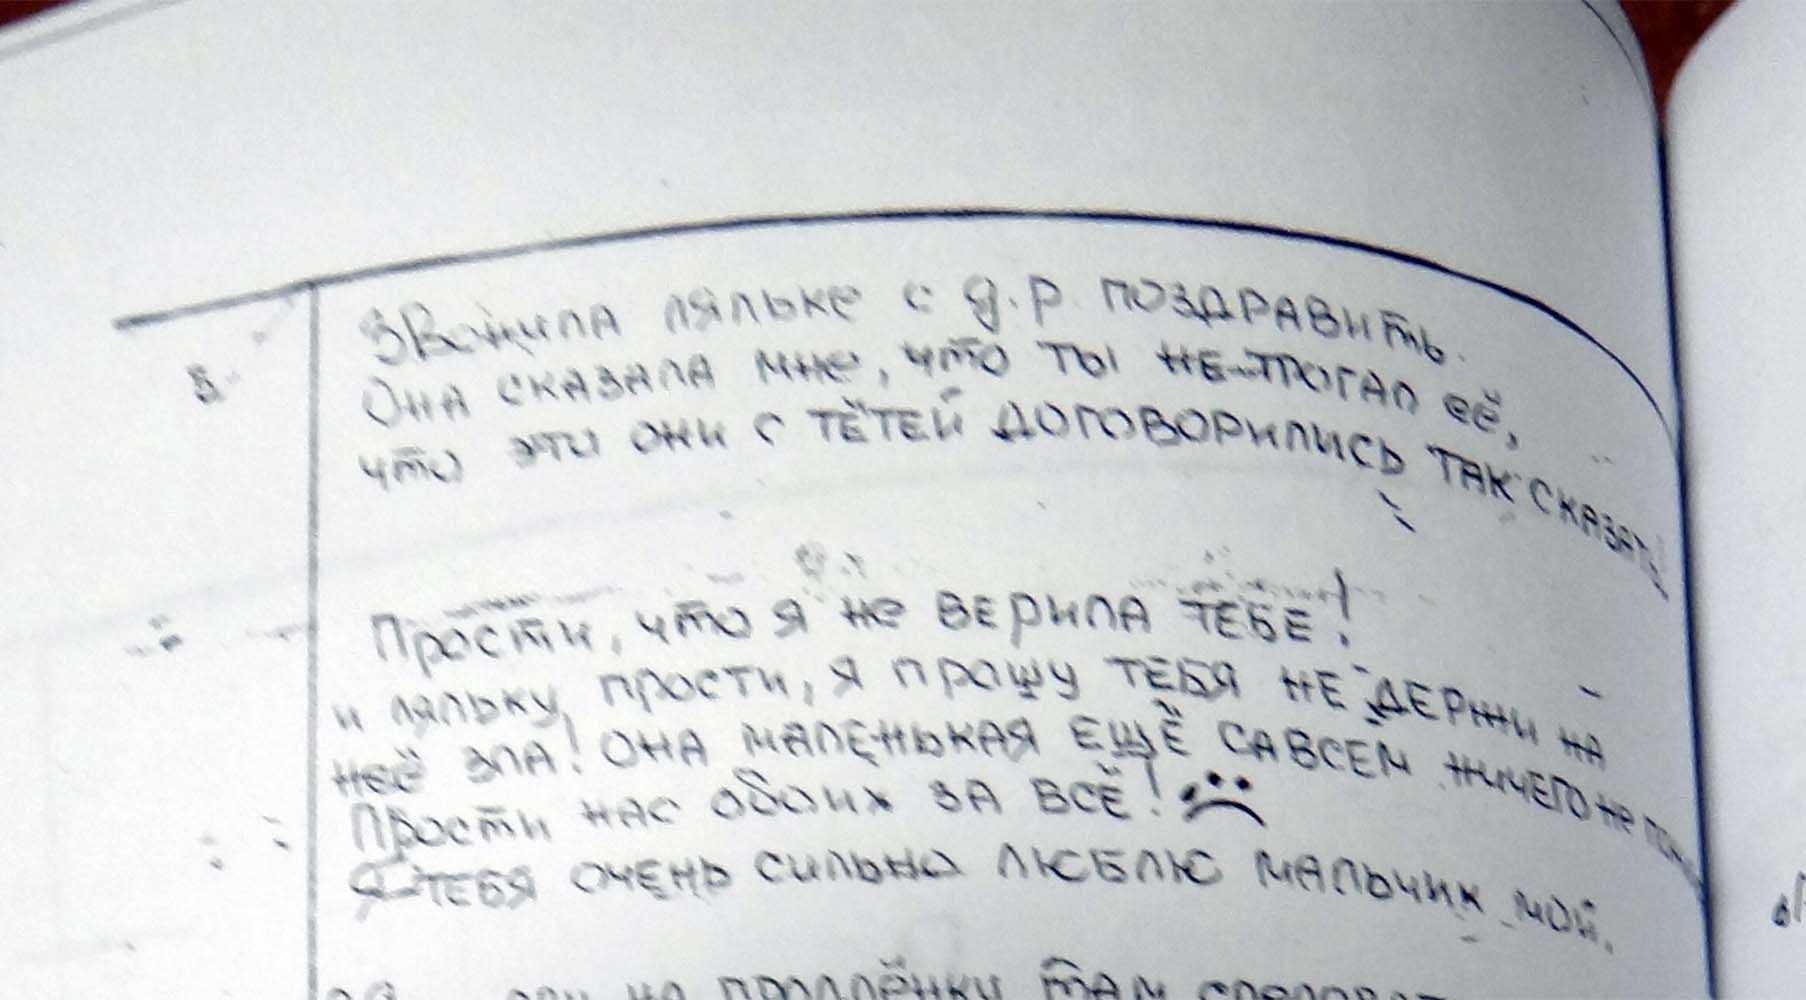 Звонила ляльке с д.р. поздравить.
Она сказала мне, что ты не трогал её,
что это они с тётей договорились так сказать!
Прости, что я не верила тебе!
и ляльку прости, я прошу тебя не держи на
неё зла! Она маленькая ещё савсем ничего не
Прости нас обоих за всё!
Я тебя очень сильно люблю мальчик мой.
на там